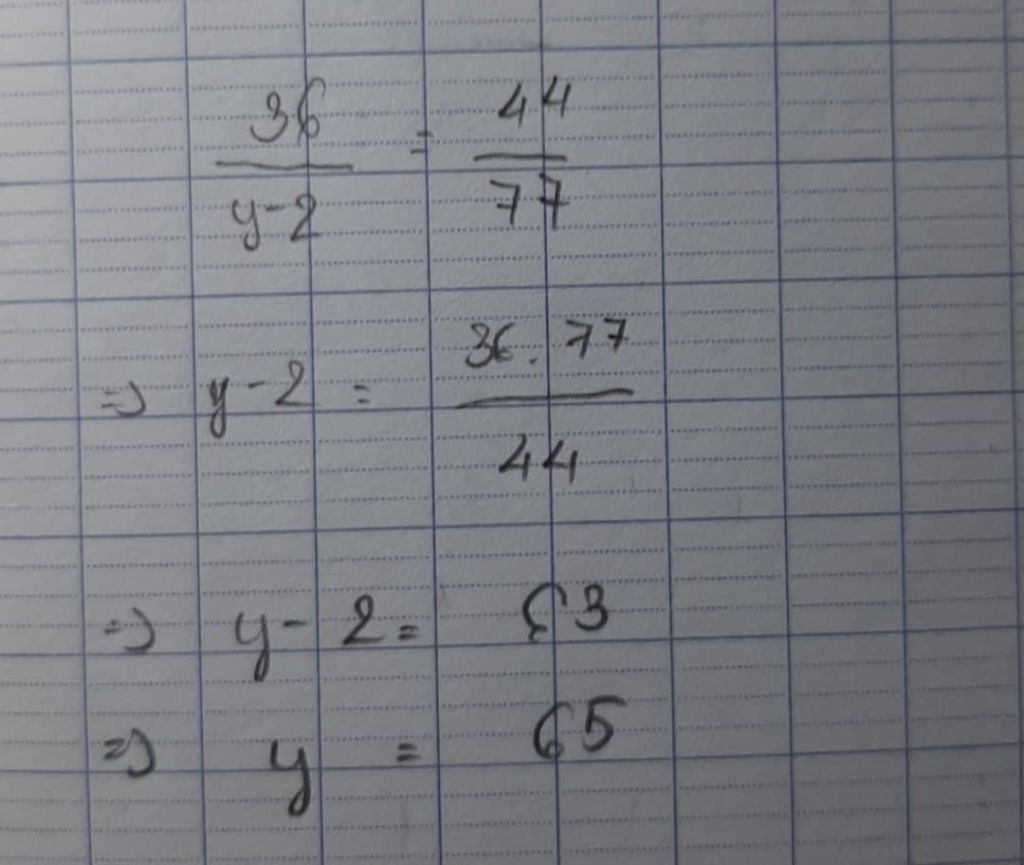 36/y-2 = 44/77
=> y-2 = 36.77/44
=> y-2= 63
=> y = 65